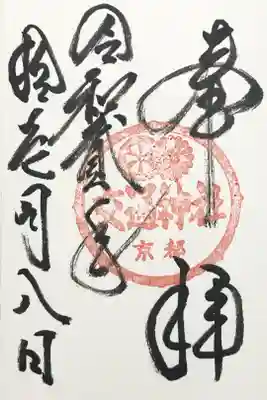 奉拝
令和貳年
拾壱月八日
神社
京都